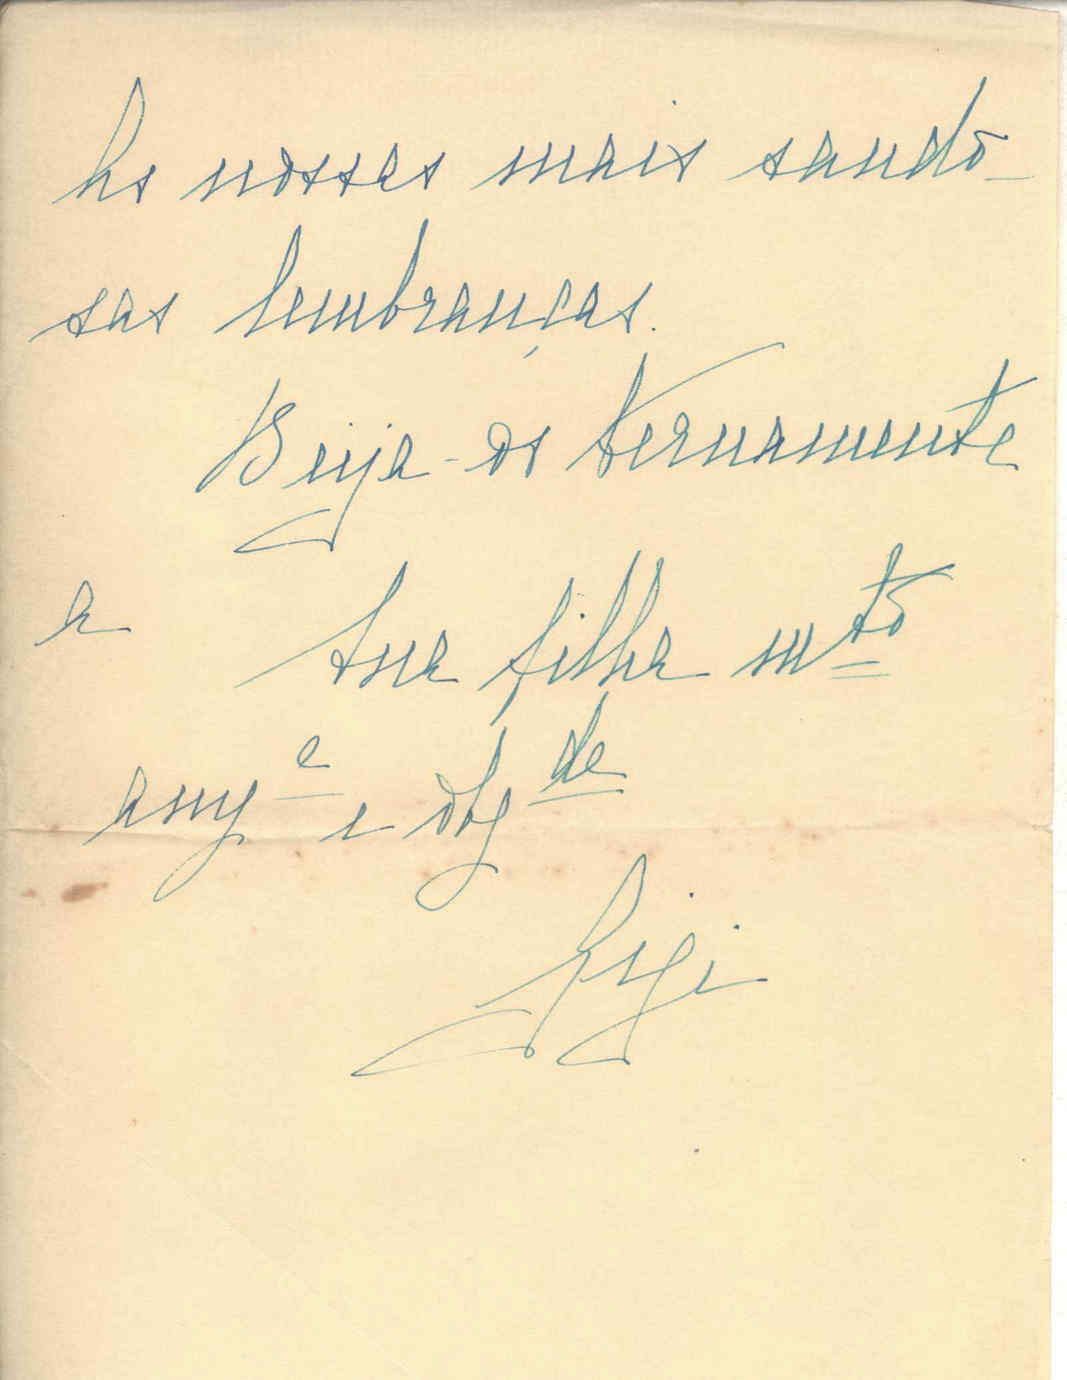 As nossas mais saudo-
sas lembranças.
Beija-os ternamente
a sua filha mto
amga e obgde
Gigi